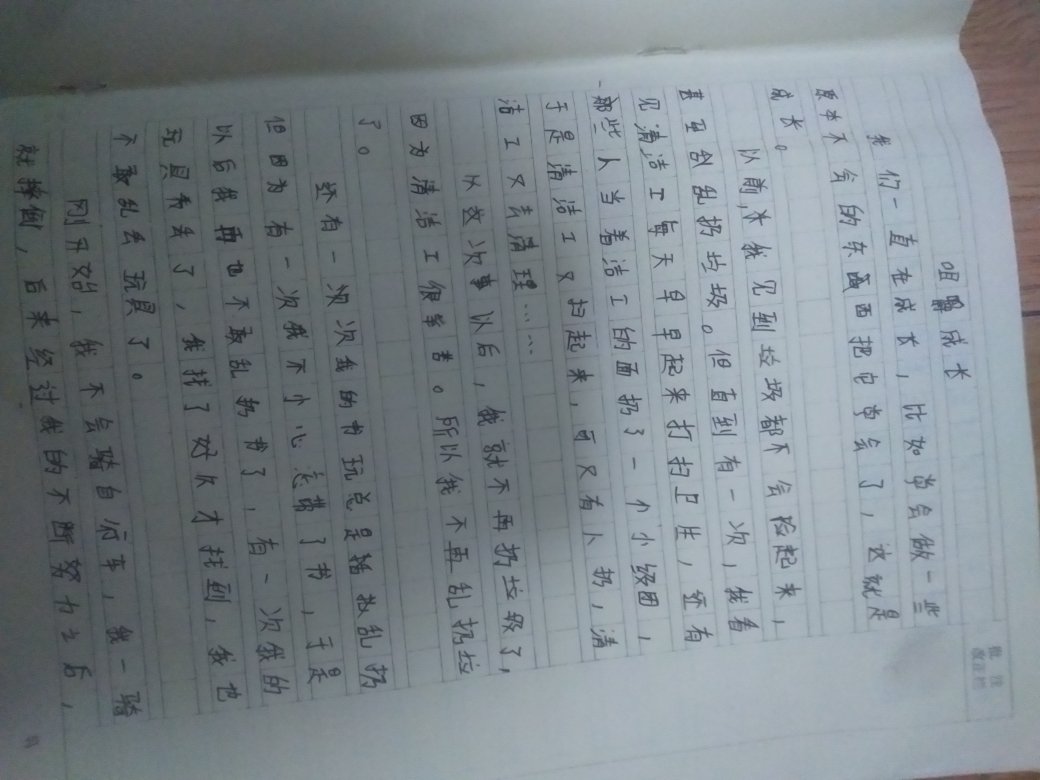 咀嚼成长
我们一直在成长，比如学会做一些
原本不会的东西把它学会了，这就是
成长。
以前，我见到垃圾都不会捡起来，
甚至乱扔垃圾。但直到有一次，我看
见清洁工每天早早起来打扫卫生，还有
那些人当着洁工的面扔了一个小纸团，
于是清洁工又扫起来，可又有人扔，清
洁工又去清理……
从这次事以后，我就不再扔垃圾了，
因为清洁工很辛苦。所以我不再乱扔垃
了。
还有一次次我的书玩总是摇扔乱扔
但因为有一次我不小心忘带了书，于是
以后我再也不敢乱扔书了，有一次我的
玩具弄丢了，我找了好久才找到，我也
不敢乱丢玩具了。
刚开始，我不会骑自行车，我一骑
就摔倒，后来经过我的不断努力之后，
批注